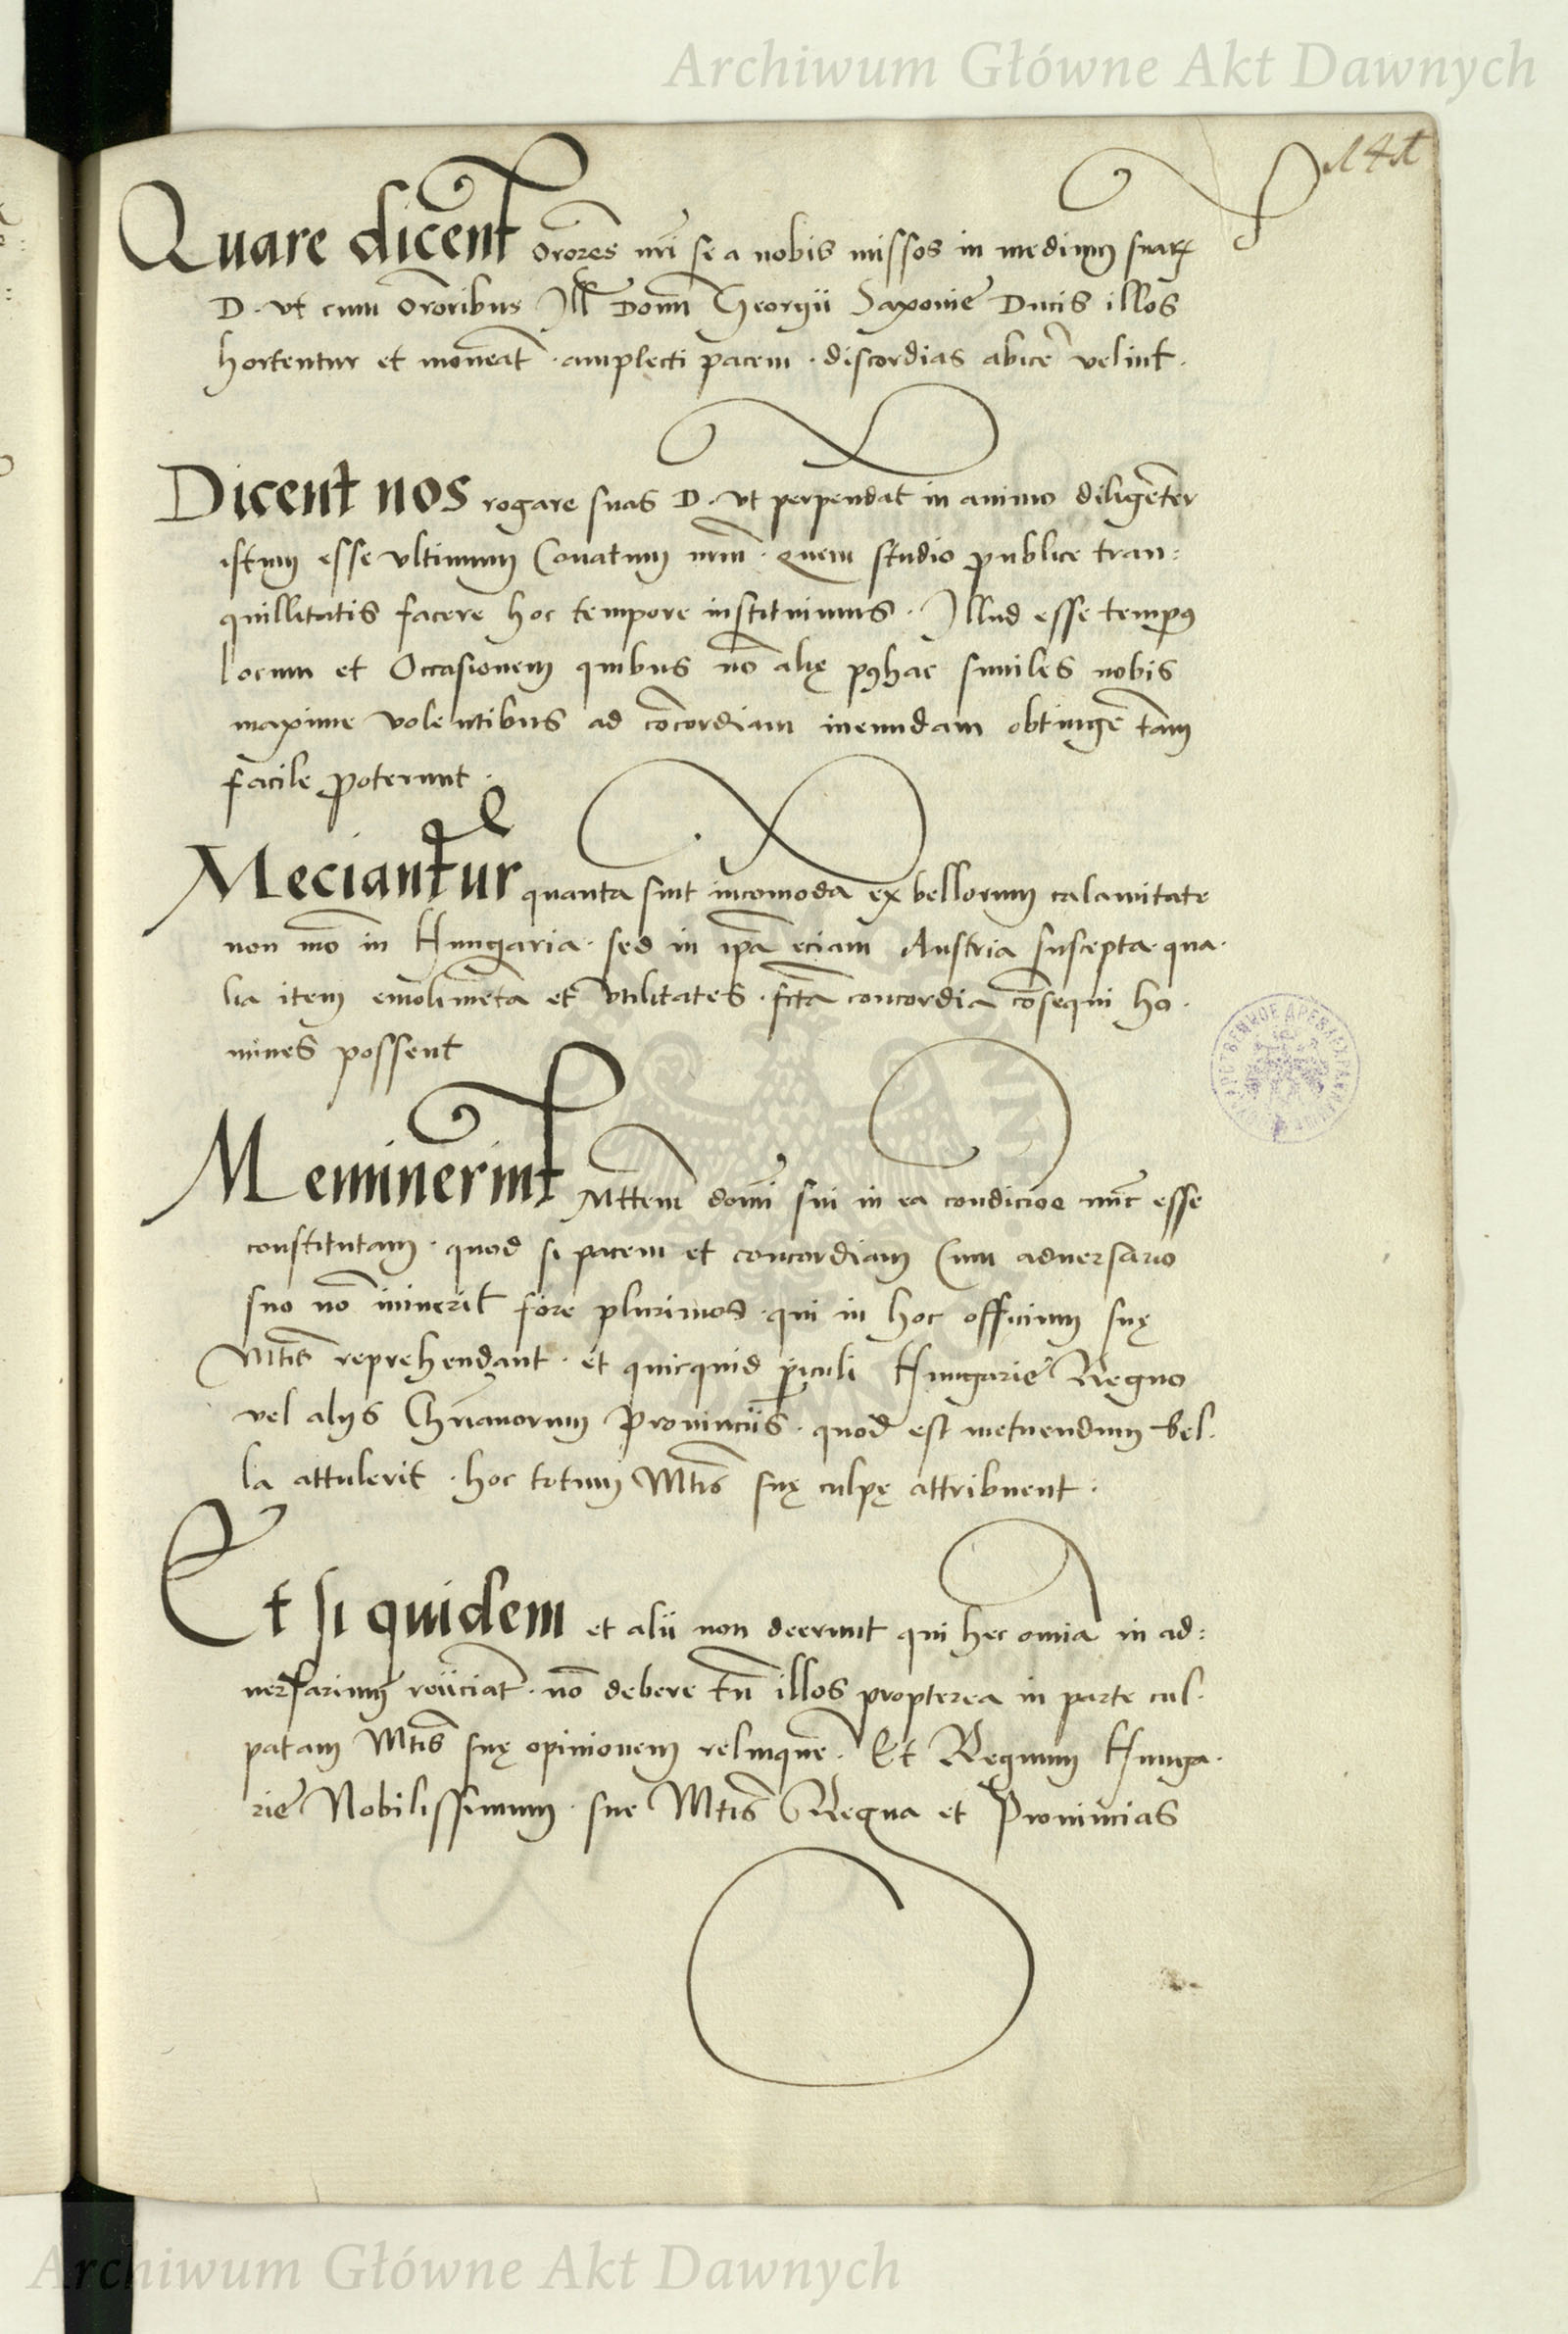 Archiwum Główne Akt Dawnych
141
Quare dicent orōres nr̄i se a nobis missos in medium suarꝝ
D. vt cum orōribus Ill Domī Georgii Saxonie Ducis illos
hortentur et moneāt · amplecti pacem · discordias abicē velint ·
Dicent nos rogare suas D. vt perpendāt in animo diligēter
istum esse vltimum Conatum nrm̄ · quem studio publice tran:
quillitatis facere hoc tempore instituimus · Illud esse tempꝰ
locum et Occasionem quibus nō alię pꝰhac similes nobis
maxime volentibus ad cōcordiam ineundam obtingē tam
facile poterunt ·
Meciantur quanta sint incomoda ex bellorum calamitate
non mō in Hungaria · sed in ip̄a eciam Austria suscepta · qua ·
lia item emolimēta et vtilitates · fc̄ta concordia cōsequi ho ·
mines possent
Meminerint Mttem̄ domī sui in ea condicioe nūc esse
constitutam · quod si pacem et concordiam Cum aduersario
suo nō inīuerit fore plurimos · qui in hoc officium suę
Mtis̄ reprehendant · et quicquid ꝑiculi Hungarie Regno
vel alys Chrīanorum Prouinciis · quod est metuendum bel ·
la attulerit · hoc totum Mtis̄ suę culpę attribuent ·
Et si quidem et alii non deerunt qui hec omīa in ad:
uersarium reiīciāt · nō debere tn̄ illos propterea in parte cul ·
patam Mtis̄ suę opinionem relinquē · Et Regnum Hunga ·
rie Nobilissimum · sue Mtis̄ Regna et Prouincias
Archiwum Główne Akt Dawnych